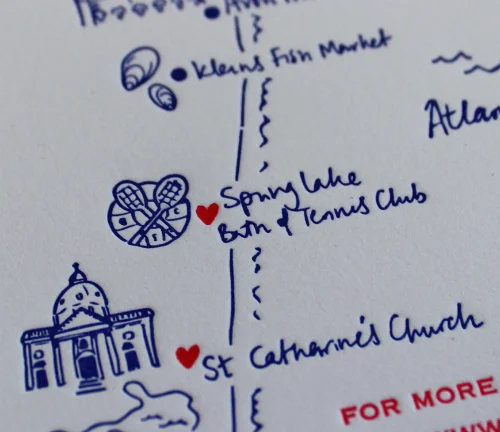 Kleins Fish Market
Atlan
Spring Lake
Bath & Tennis Club
St Catharine's Church
FOR MORE
WWW